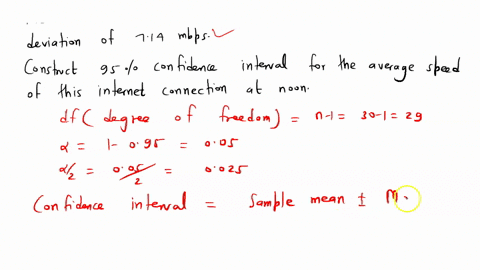 deviation of 7.14 mbps.
Construct 95% confidence interval for the average speed
of this internet connection at noon.
df (degree of freedom) = n-1 = 30-1 = 29
α = 1- 0.95 = 0.05
α/2 = 0.05/2 = 0.025
Confidence interval = Sample mean ± M.